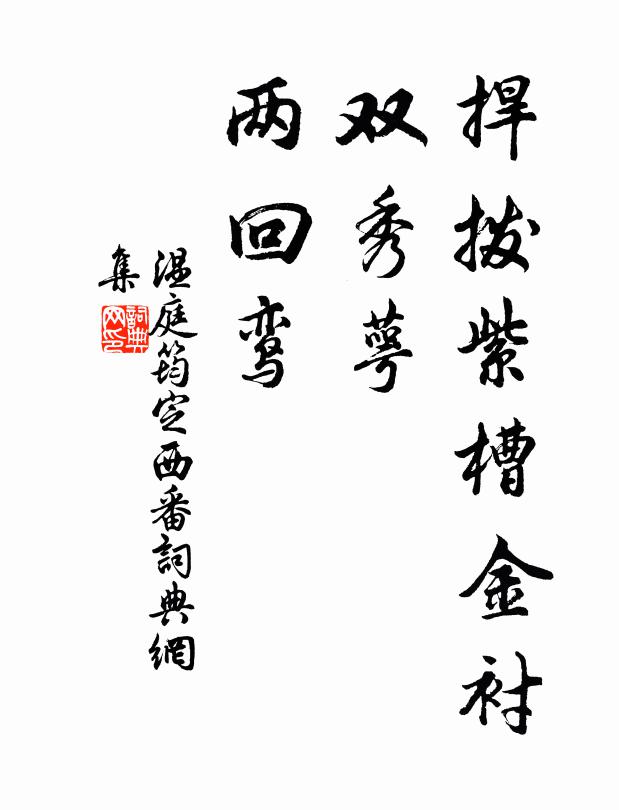 捍拨紫槽金衬
双秀萼
两回鸾
温庭筠定西番詞典網
集
詞典
网印